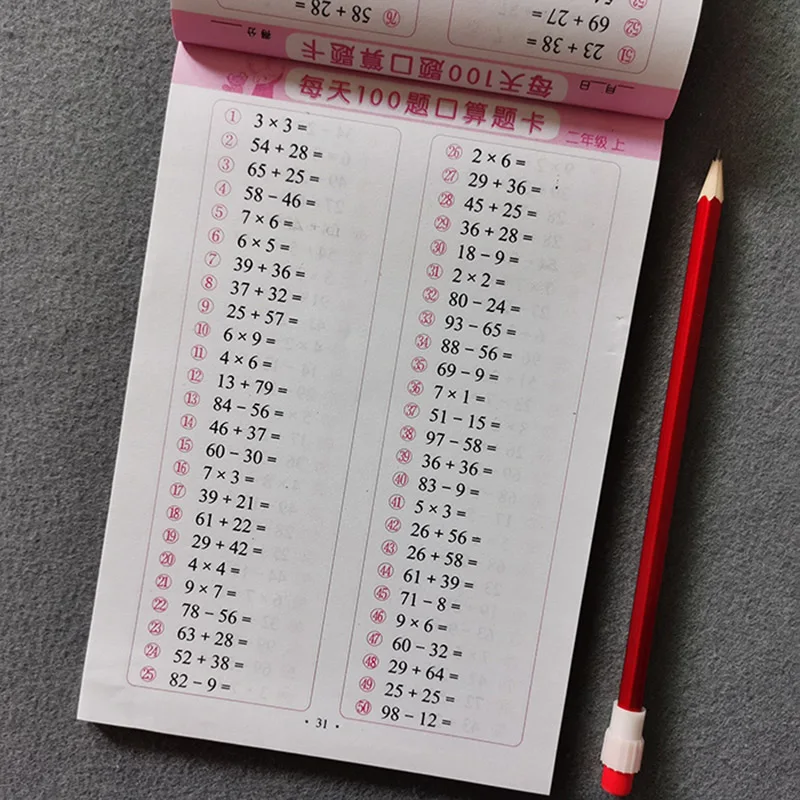 76 58 + 28 =
51 23 + 38 =
52 69 + 27 =
月 日 每天100题口算题卡 得分
每天100题口算题卡 二年级 上
① 3 × 3 =
② 54 + 28 =
③ 65 + 25 =
④ 58 − 46 =
⑤ 7 × 6 =
⑥ 6 × 5 =
⑦ 39 + 36 =
⑧ 37 + 32 =
⑨ 25 + 57 =
⑩ 6 × 9 =
⑪ 4 × 6 =
⑫ 13 + 79 =
⑬ 84 − 56 =
⑭ 46 + 37 =
⑮ 60 − 30 =
⑯ 7 × 3 =
⑰ 39 + 21 =
⑱ 61 + 22 =
⑲ 29 + 42 =
⑳ 4 × 4 =
㉑ 9 × 7 =
㉒ 78 − 56 =
㉓ 63 + 28 =
㉔ 52 + 38 =
㉕ 82 − 9 =
㉖ 2 × 6 =
㉗ 29 + 36 =
㉘ 45 + 25 =
㉙ 36 + 28 =
㉚ 18 − 9 =
㉛ 2 × 2 =
㉜ 80 − 24 =
㉝ 93 − 65 =
㉞ 88 − 56 =
㉟ 69 − 9 =
㊱ 7 × 1 =
㊲ 51 − 15 =
㊳ 97 − 58 =
㊴ 36 + 36 =
㊵ 83 − 9 =
㊶ 5 × 3 =
㊷ 26 + 56 =
㊸ 26 + 58 =
㊹ 61 + 39 =
㊺ 71 − 8 =
㊻ 9 × 6 =
㊼ 60 − 32 =
㊽ 29 + 64 =
㊾ 25 + 25 =
㊿ 98 − 12 =
· 31 ·